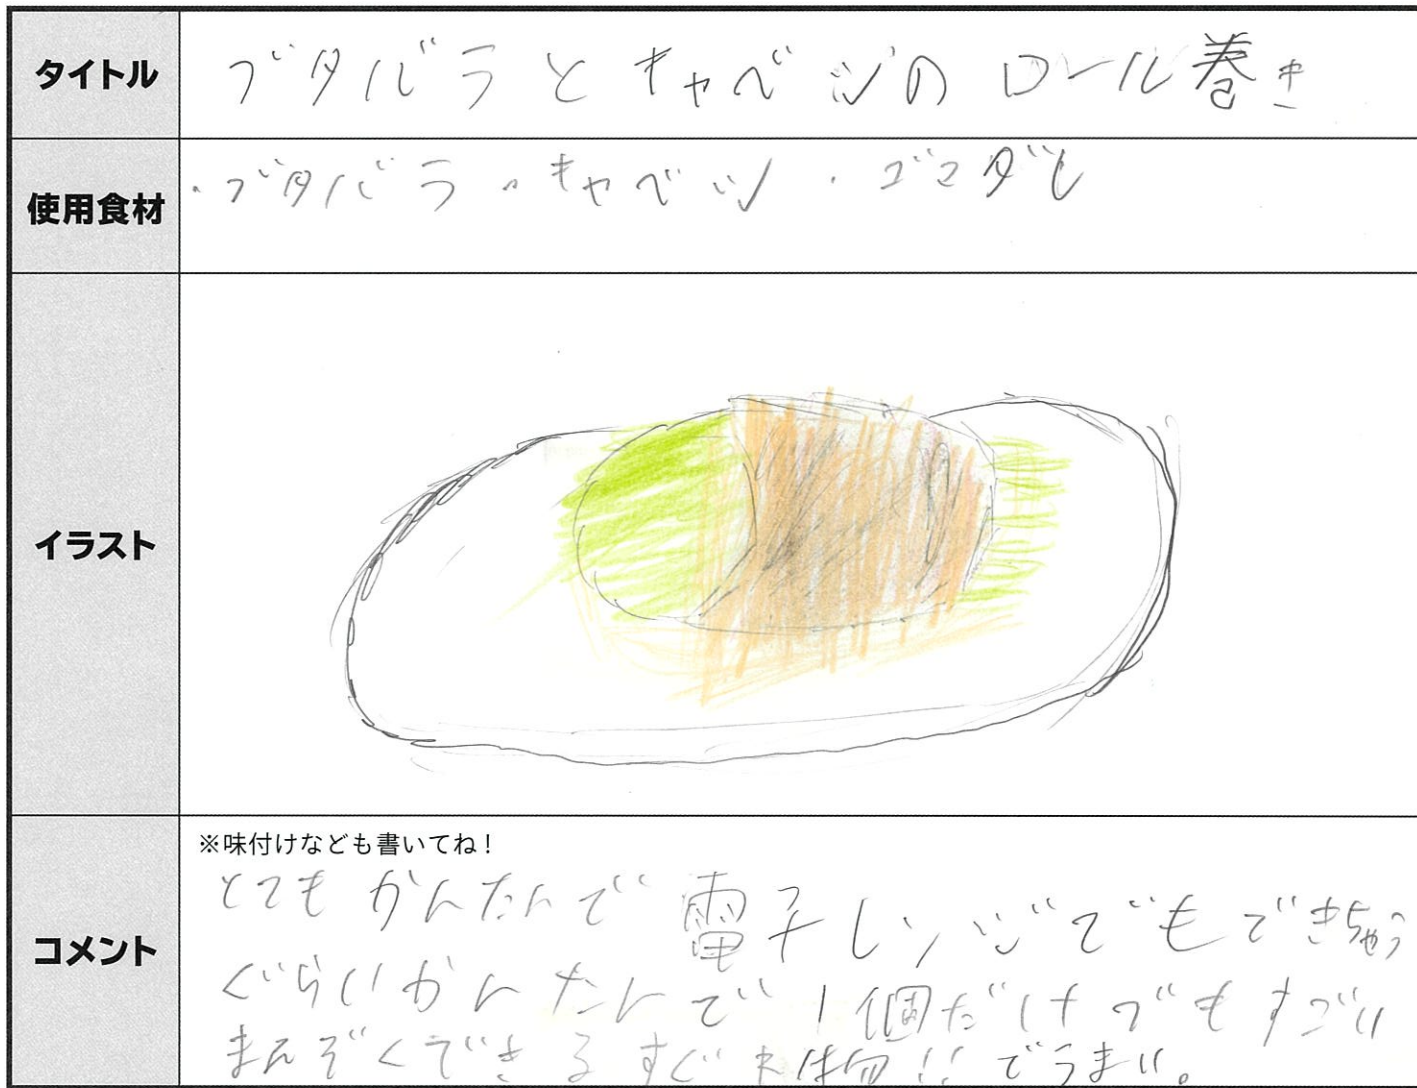 タイトル
ブタバラとキャベツのロール巻き
使用食材
・ブタバラ・キャベツ・ゴマダレ
イラスト
コメント
※味付けなども書いてね!
とてもかんたんで電子レンジでもできちゃう
ぐらいかんたんで1個だけでもすごい
まんぞくできるすぐれ物!!でうまい。